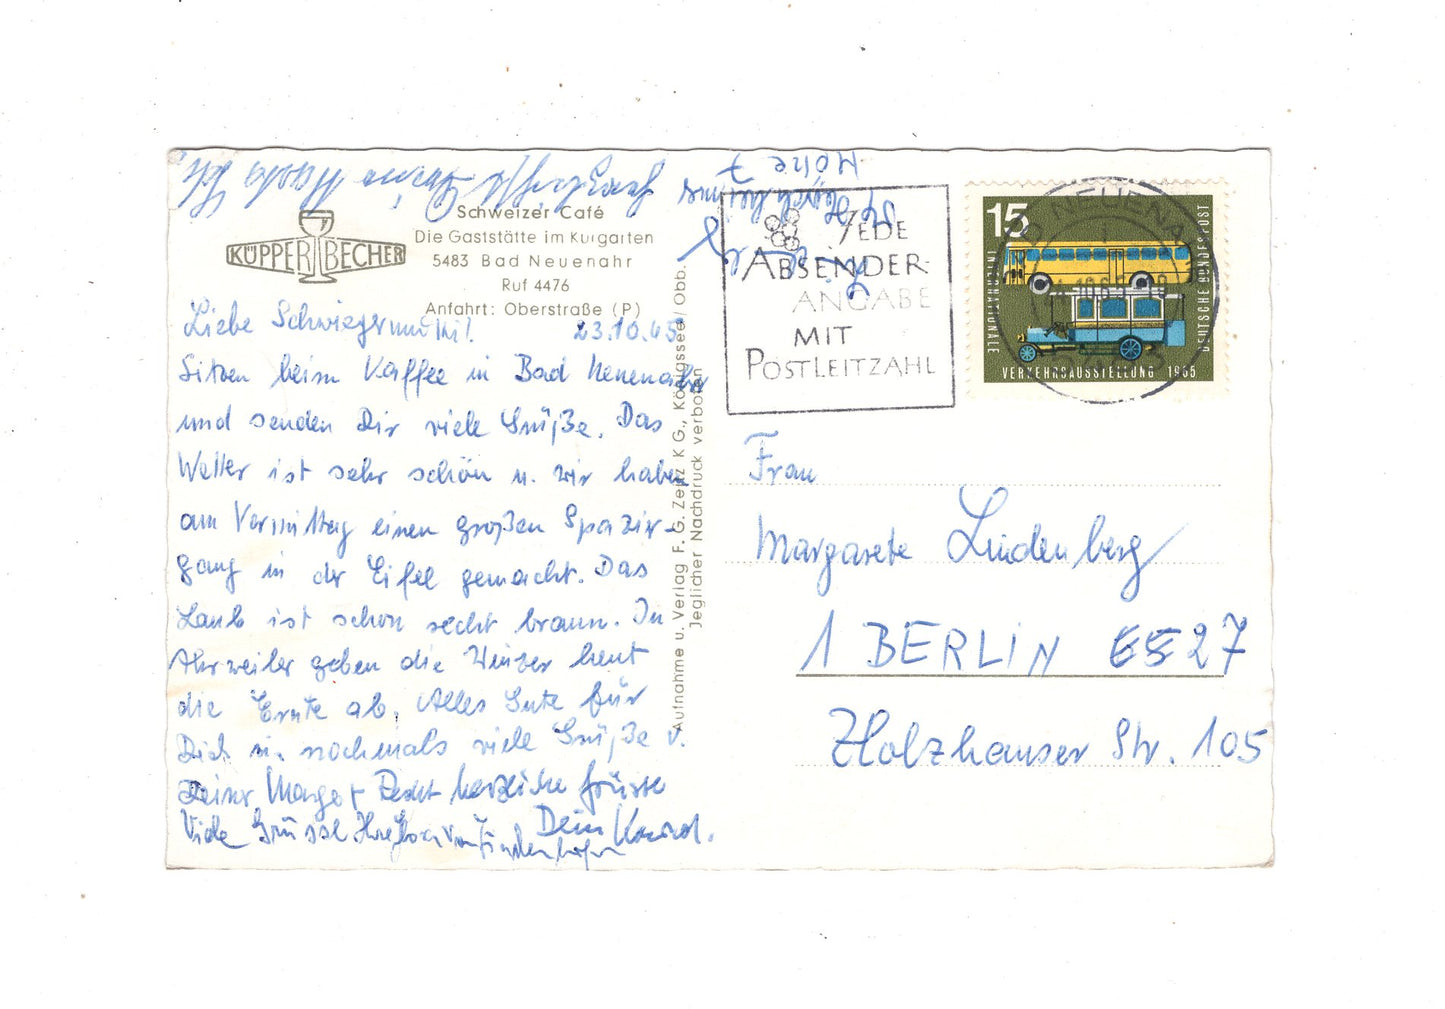 Schweizer Café
Die Gaststätte im Kurgarten
5483 Bad Neuenahr
Ruf 4476
Anfahrt: Oberstraße (P)
KÜPPER BECHER
23.10.65
Liebe Schwiegermutti!
Sitzen beim Kaffee in Bad Neuenahr
und senden Dir viele Grüße. Das
Wetter ist sehr schön u. wir haben
am Vormittag einen großen Spazier-
gang in der Eifel gemacht. Das
Laub ist schon recht braun. In
Ahrweiler geben die Winzer heut
die Ernte ab. Alles Gute für
Dich u. nochmals viele Grüße v.
Deiner Margot Recht herzliche Grüsse
Dein Konrad.
Viele Grüsse
Aufnahme u. Verlag F. G. Zeitz K G., Königssee / Obb.
Jeglicher Nachdruck verboten
JEDE
ABSENDER-
ANGABE
MIT
POSTLEITZAHL
BAD NEUENAHR
15
INTERNATIONALE
VERKEHRSAUSSTELLUNG 1965
DEUTSCHE BUNDESPOST
Frau
Margarete Lindenberg
1 BERLIN 27
Holzhauser Str. 105